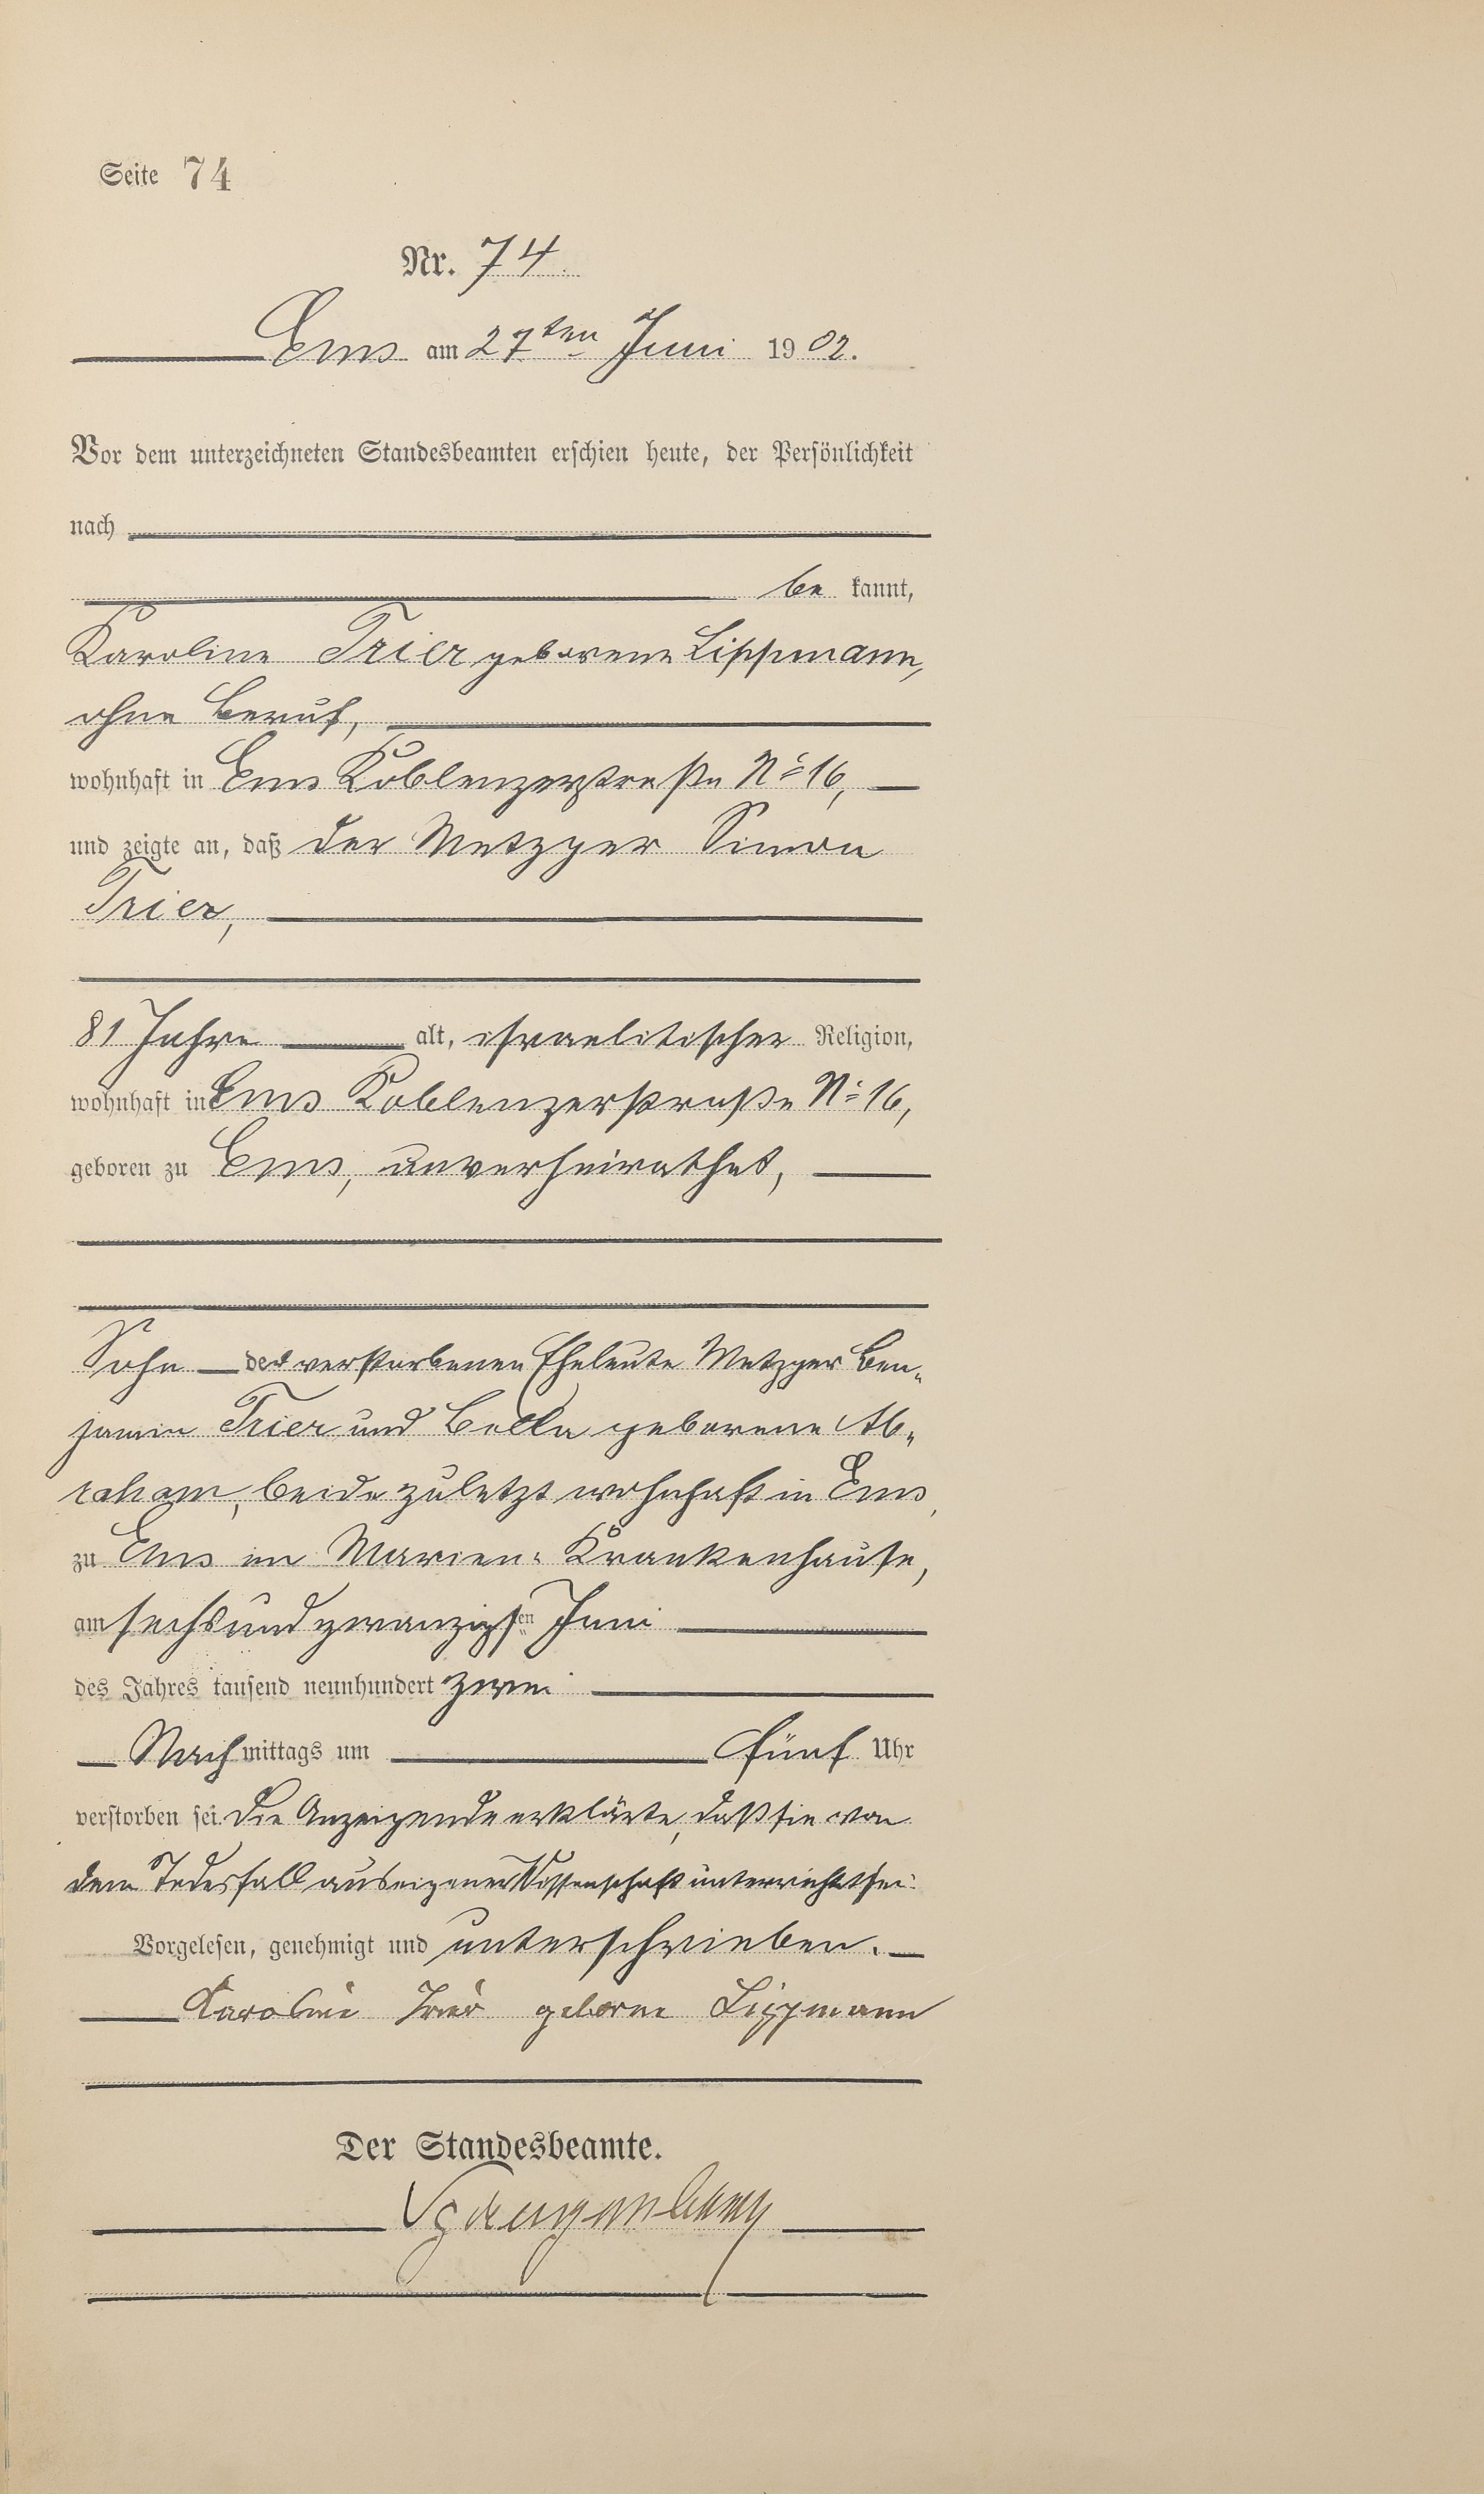 Seite 74
Nr. 74.
Ems am 27ten Juni 1902.
Vor dem unterzeichneten Standesbeamten erschien heute, der Persönlichkeit
nach
be kannt,
Karoline Trier geborene Lippmann,
ohne Beruf,
wohnhaft in Ems Koblenzerstraße No 16,
und zeigte an, daß der Metzger Simon
Trier,
81 Jahre alt, israelitischer Religion,
wohnhaft in Ems Koblenzerstraße No 16,
geboren zu Ems, unverheirathet,
Sohn der verstorbenen Eheleute Metzger Ben„
jamin Trier und Bella geborene Ab„
raham, beide zuletzt wohnhaft in Ems,
zu Ems im Marien-Krankenhause,
am sechsundzwanzigsten Juni
des Jahres tausend neunhundert zwei
Nachmittags um fünf Uhr
verstorben sei. Die Anzeigende erklärte, daß sie von
dem Todesfall aus eigener Wissenschaft unterrichtet sei.
Vorgelesen, genehmigt und unterschrieben.
Karoline Trier geborne Lippmann
Der Standesbeamte.
Spangenberg